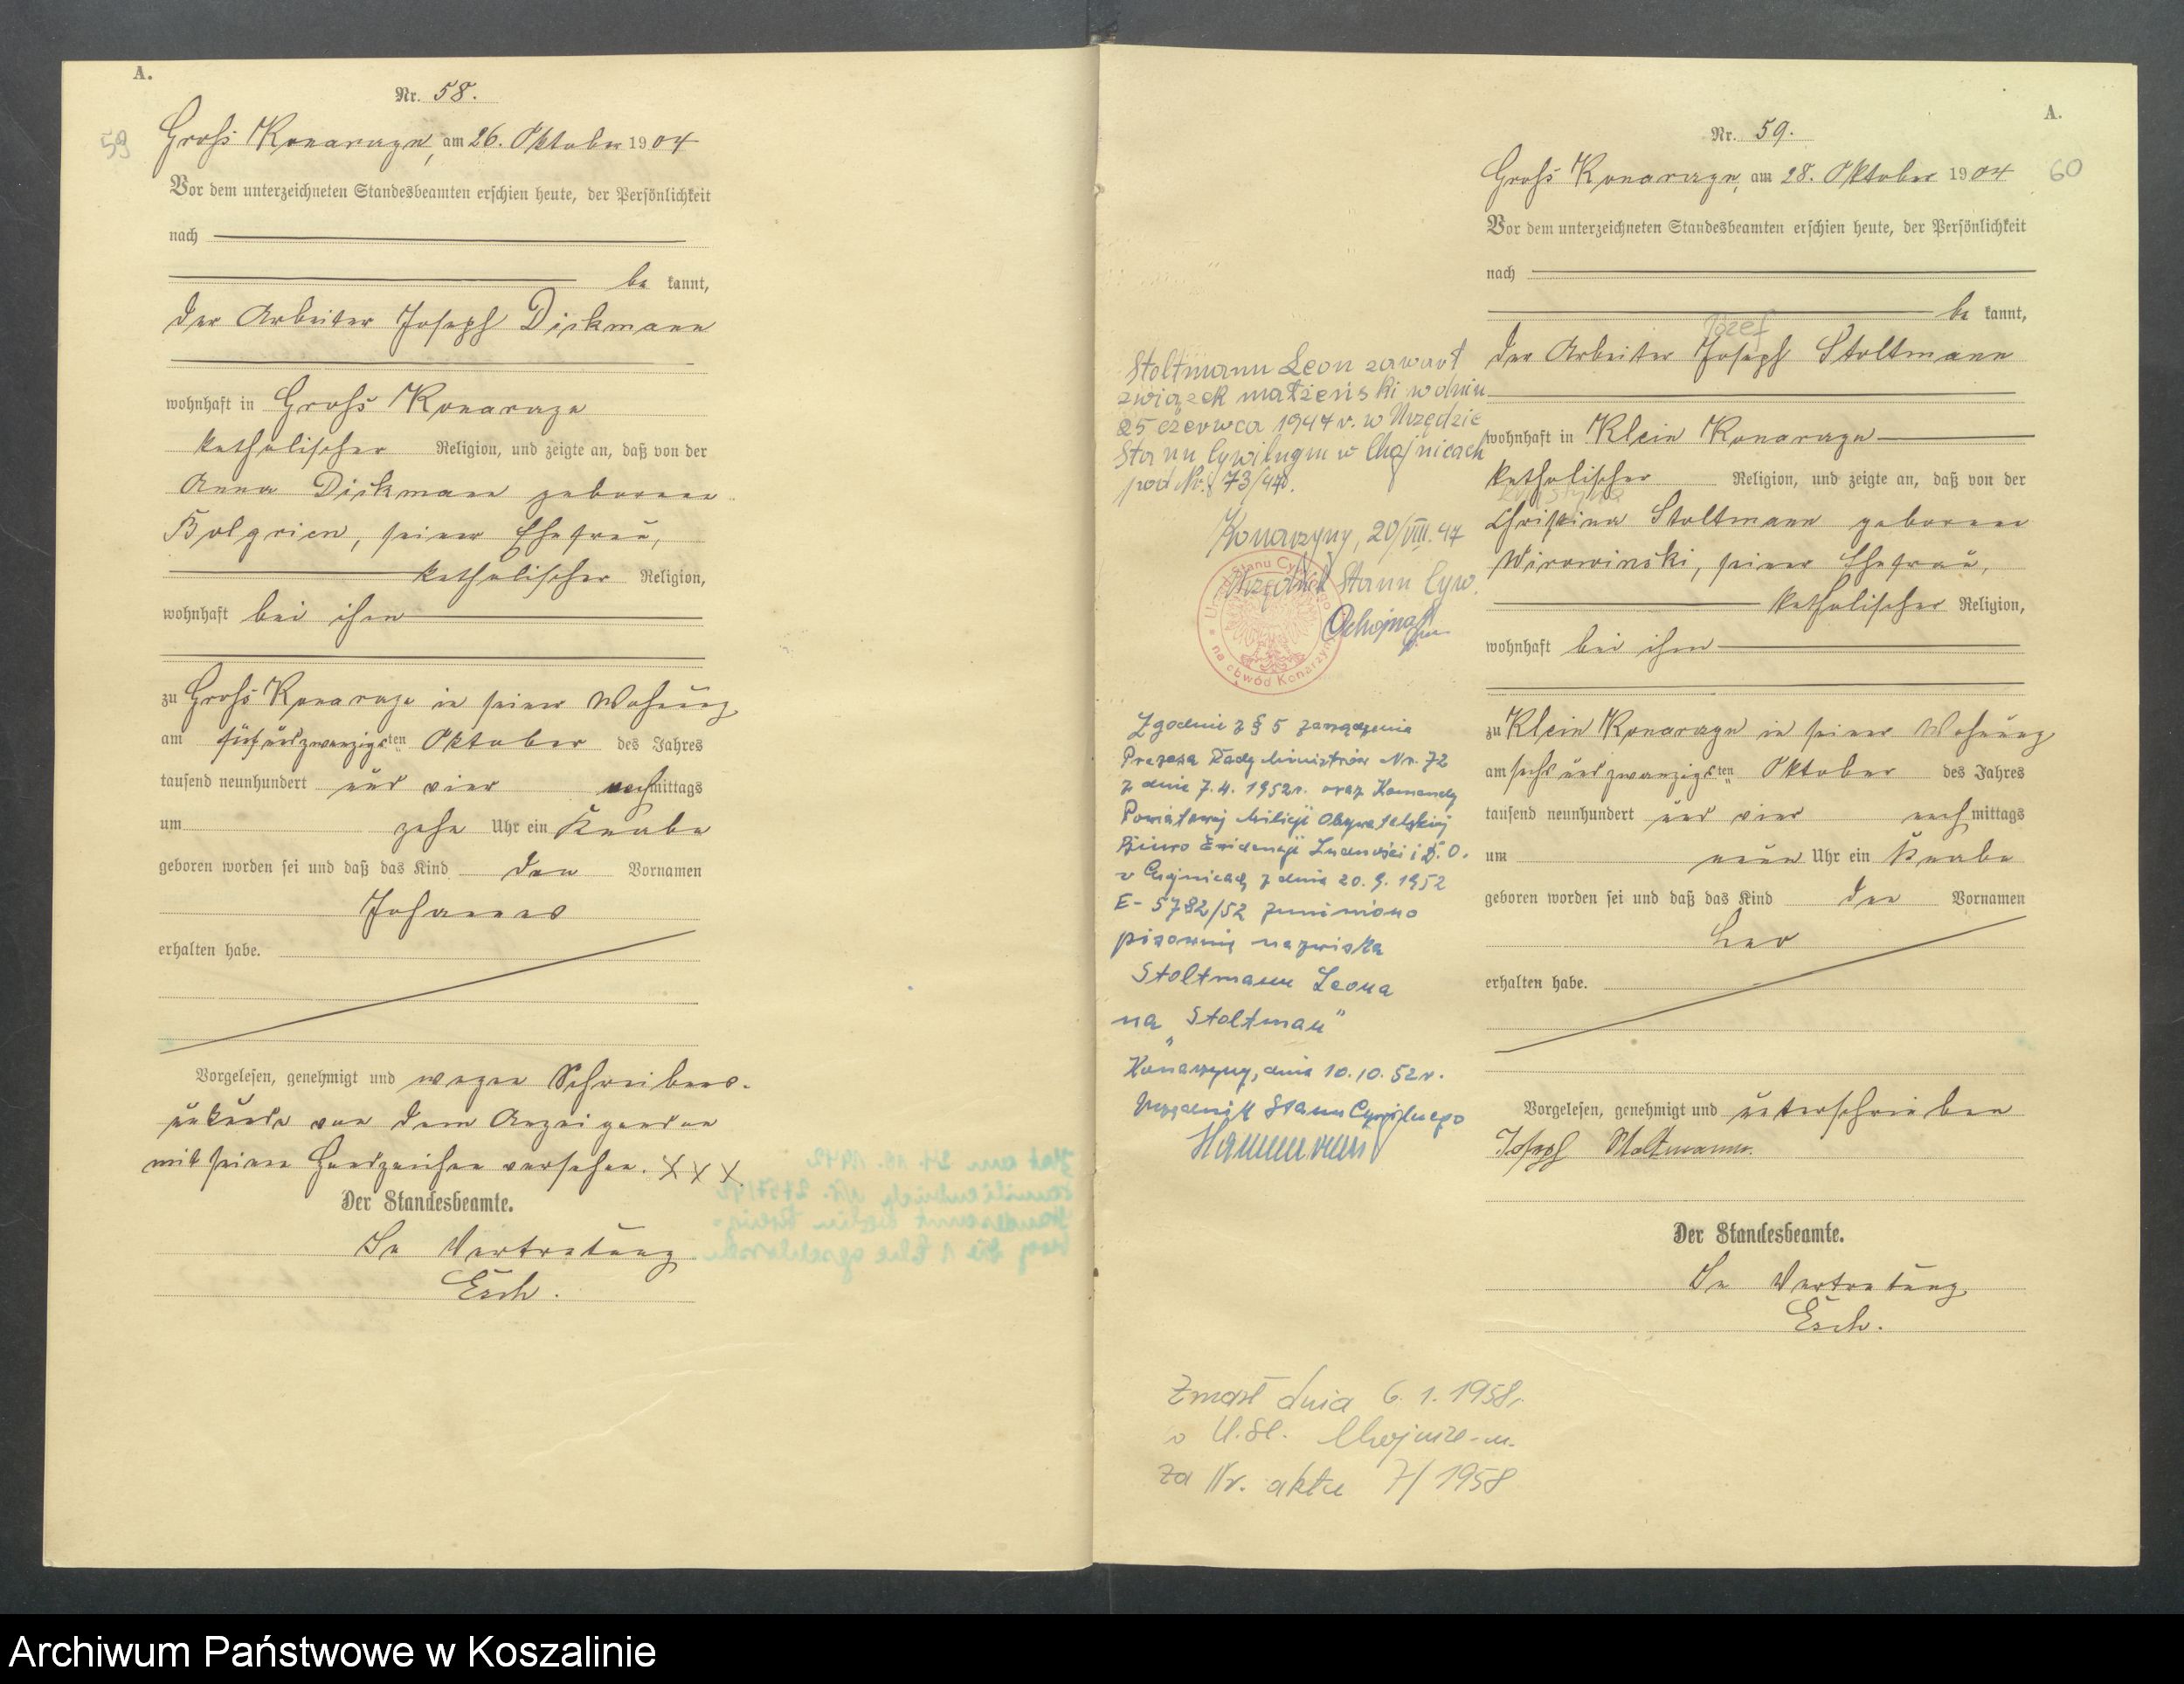 A.
Nr. 58.
59
Gross Konarczyn, am 26. Oktober 1904
Vor dem unterzeichneten Standesbeamten erschien heute, der Persönlichkeit
nach
be kannt,
der Arbeiter Joseph Dickmann
wohnhaft in Gross Konarczyn
katholischer Religion, und zeigte an, daß von der
Anna Dickmann geborenen
seiner Ehefrau,
katholischer Religion,
wohnhaft bei ihm
zu Gross Konarczyn in seiner Wohnung
am fünfundzwanzigsten Oktober des Jahres
tausend neunhundert und vier nachmittags
um zehn Uhr ein Knabe
geboren worden sei und daß das Kind den Vornamen
Johannes
erhalten habe.
Vorgelesen, genehmigt und wegen Schreibens-
unkunde von dem Anzeigenden
mit seinem Handzeichen versehen. XXX
Der Standesbeamte.
In Vertretung
Esch.
A.
Nr. 59.
60
Gross Konarczyn, am 28. Oktober 1904
Vor dem unterzeichneten Standesbeamten erschien heute, der Persönlichkeit
nach
be kannt,
Józef
der Arbeiter Joseph Stoltmann
wohnhaft in Klein Konarczyn
katholischer Religion, und zeigte an, daß von der
Krystyna
Christina Stoltmann geborenen
seiner Ehefrau,
katholischer Religion,
wohnhaft bei ihm
zu Klein Konarczyn in seiner Wohnung
am sechsundzwanzigsten Oktober des Jahres
tausend neunhundert und vier nachmittags
um neun Uhr ein Knabe
geboren worden sei und daß das Kind den Vornamen
Leo
erhalten habe.
Vorgelesen, genehmigt und unterschrieben
Joseph Stoltmann.
Der Standesbeamte.
In Vertretung
Esch.
Stoltmann Leon zawarł
związek małżeński w dniu
25 czerwca 1947 r. w Urzędzie
Stanu Cywilnym w Chojnicach
pod Nr. 73/47.
Konarzyny, 20/VIII.47
Urzędnik Stanu Cyw.
Urząd Stanu Cywilnego na obwód Konarzyny
Zgodnie z § 5 zarządzenia
Prezesa Rady Ministrów Nr. 72
z dnia 7.4.1952r. oraz Komendy
Powiatowej Milicji Obywatelskiej
Biuro Ewidencji Ludności i D.O.
w Chojnicach z dnia 20.9.1952
E-5782/52 zmieniono
pisownię nazwiska
Stoltmann Leona
na "Stoltman"
Konarzyny, dnia 10.10.52r.
Urzędnik Stanu Cywilnego
Zmarł dnia 6.1.1958r.
za Nr. aktu 7/1958
Archiwum Państwowe w Koszalinie